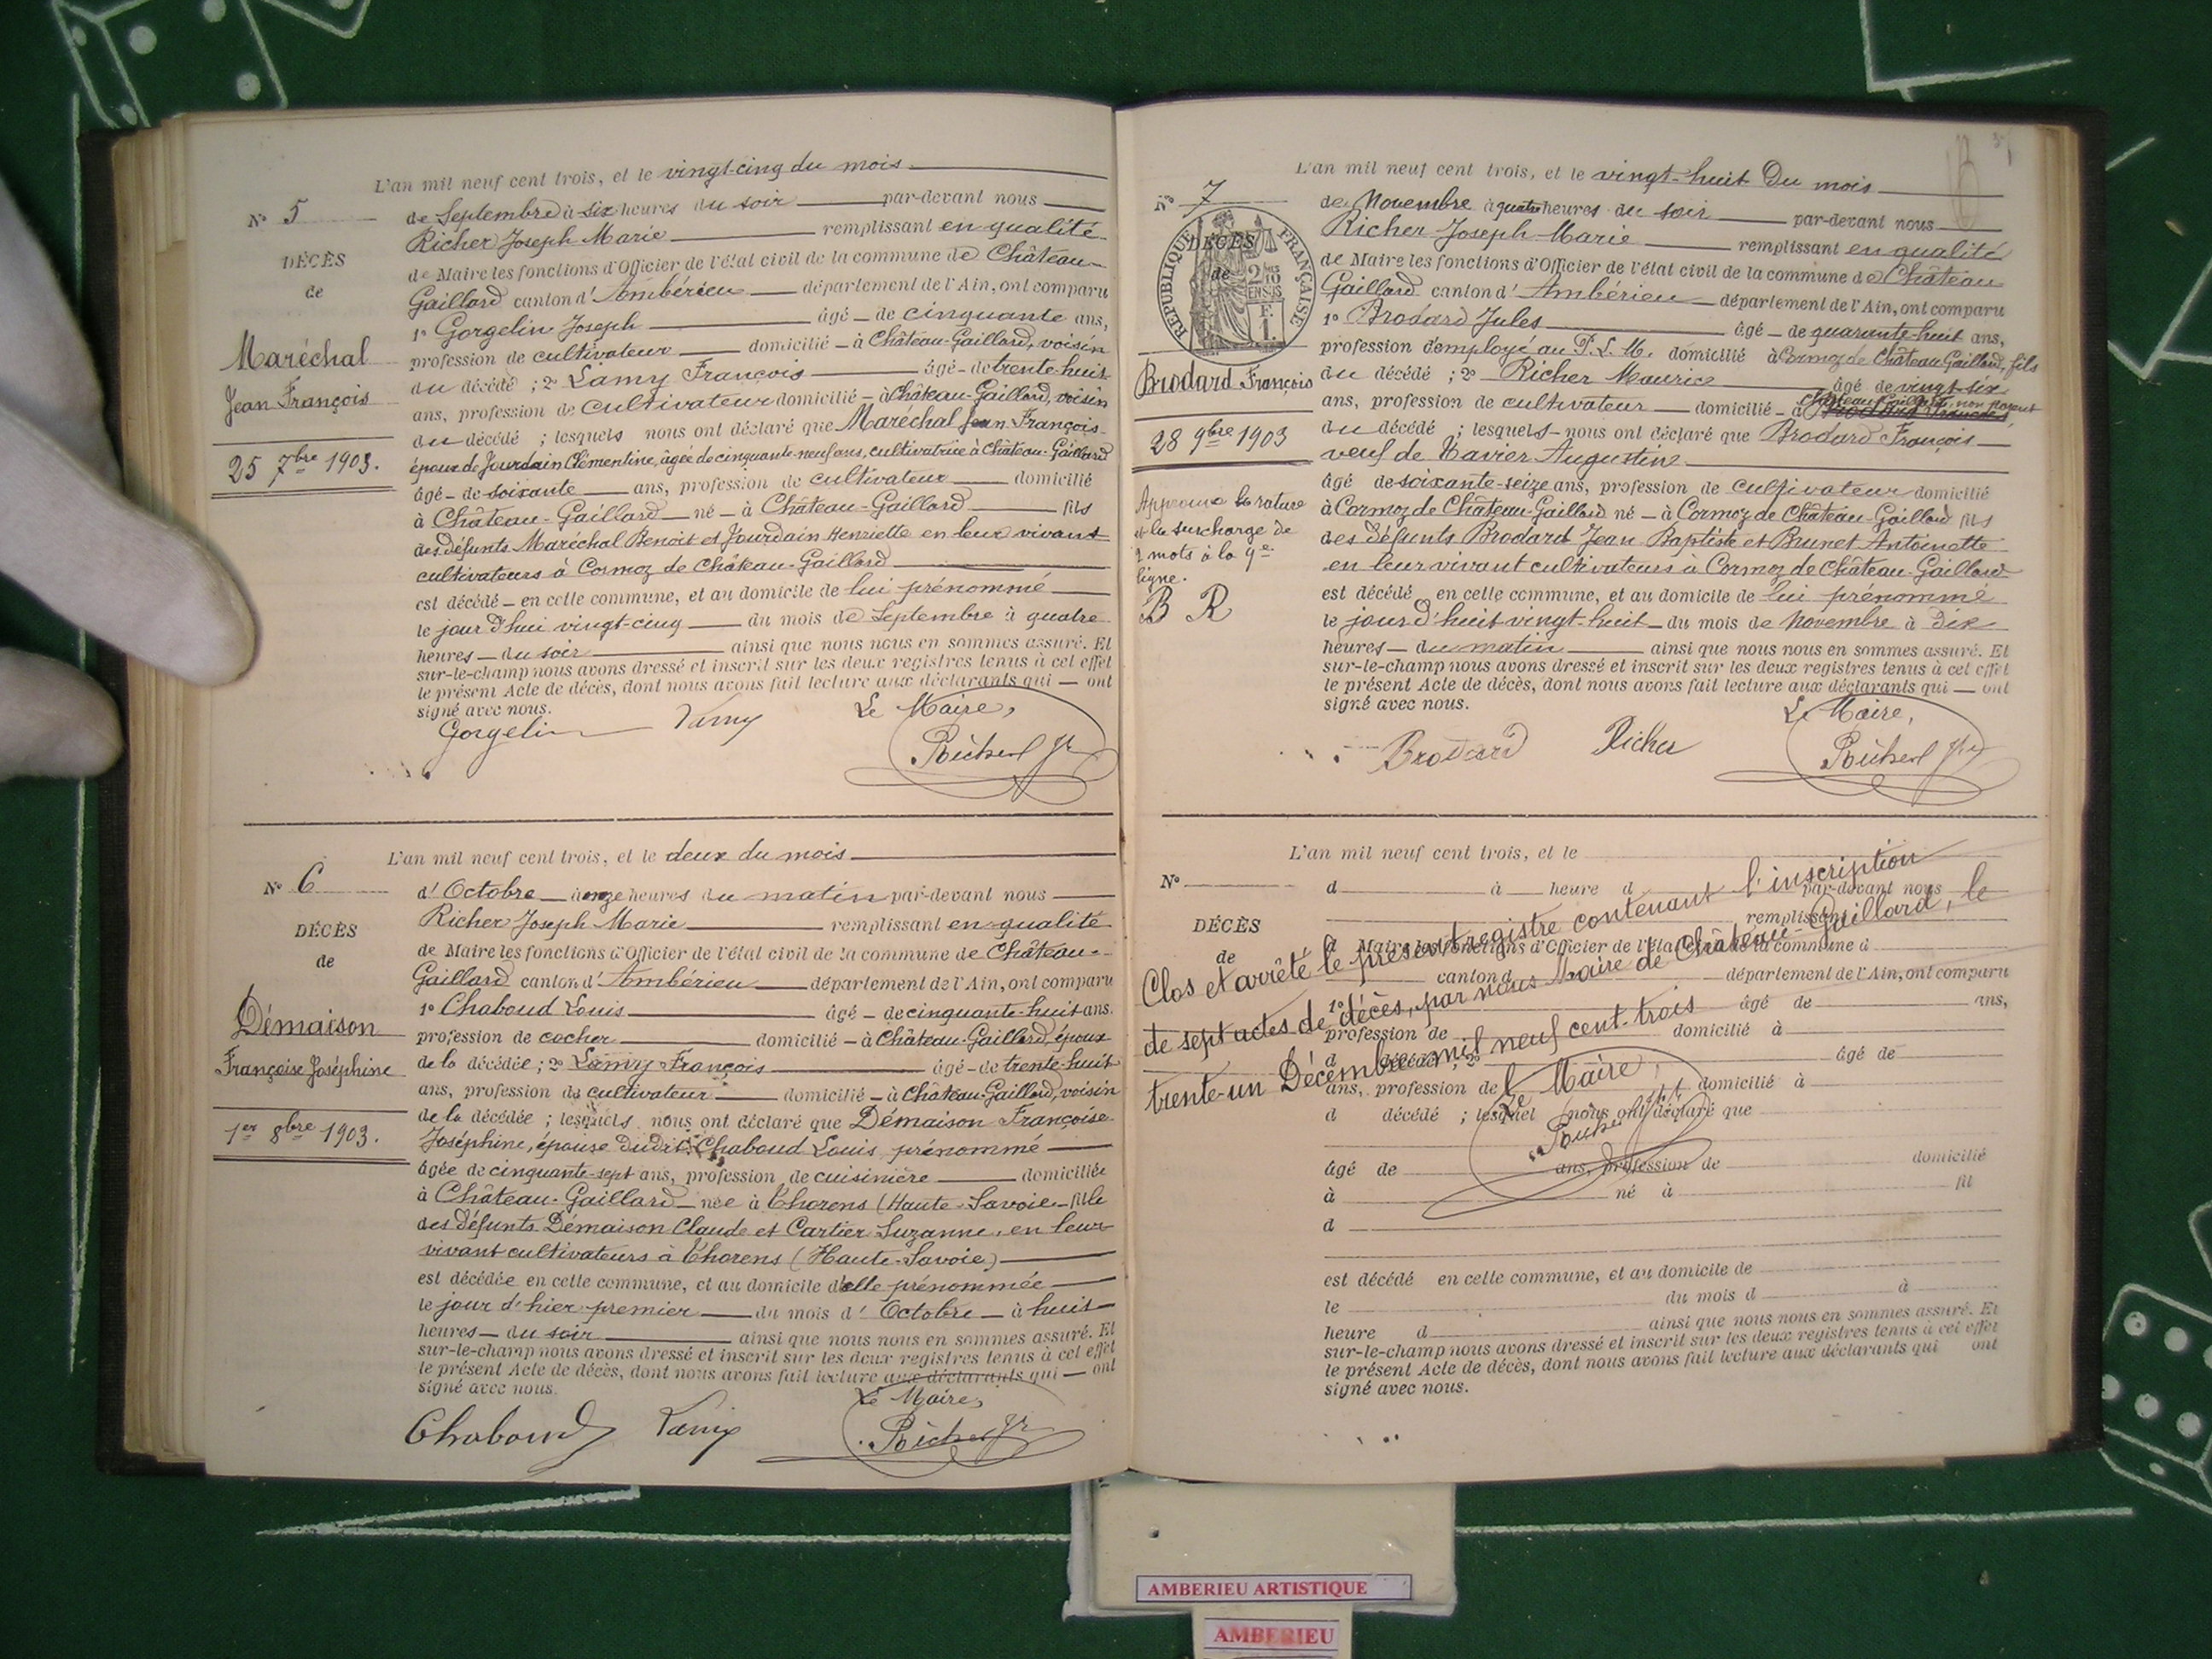 L'an mil neuf cent trois, et le vingt-cinq du mois
N° 5
de Septembre à six heures du soir par-devant nous
Richer Joseph Marie remplissant en qualité
DÉCÈS
de Maire les fonctions d'Officier de l'état civil de la commune de Château-
de
Gaillard canton d'Ambérieu département de l'Ain, ont comparu
1° Gorgelin Joseph âgé de cinquante ans,
Maréchal
profession de cultivateur domicilié à Château-Gaillard, voisin
du décédé ; 2° Lamy François âgé de trente-huit
Jean François
ans, profession de cultivateur domicilié à Château-Gaillard, voisin
du décédé ; lesquels nous ont déclaré que Maréchal Jean François
25 7bre 1903.
époux de Jourdain Clémentine, âgée de cinquante-neuf ans, cultivatrice à Château-Gaillard
âgé de soixante ans, profession de cultivateur domicilié
à Château-Gaillard né à Château-Gaillard fils
des défunts Maréchal Benoit et Jourdain Henriette en leur vivant
cultivateurs à Cormoz de Château-Gaillard
est décédé en cette commune, et au domicile de lui prénommé
le jour d'hui vingt-cinq du mois de Septembre à quatre
heures du soir ainsi que nous nous en sommes assuré. Et
sur-le-champ nous avons dressé et inscrit sur les deux registres tenus à cet effet
le présent Acte de décès, dont nous avons fait lecture aux déclarants qui ont
signé avec nous.
Le Maire,
Gorgelin Lamy Richer Jh
L'an mil neuf cent trois, et le deux du mois
N° 6
d'Octobre à onze heures du matin par-devant nous
Richer Joseph Marie remplissant en qualité
DÉCÈS
de Maire les fonctions d'Officier de l'état civil de la commune de Château-
de
Gaillard canton d'Ambérieu département de l'Ain, ont comparu
1° Chaboud Louis âgé de cinquante-huit ans.
Démaison
profession de cocher domicilié à Château-Gaillard, époux
Françoise Joséphine
de la décédée ; 2° Lamy François âgé de trente-huit
ans, profession de cultivateur domicilié à Château-Gaillard, voisin
de la décédée ; lesquels nous ont déclaré que Démaison Françoise
1er 8bre 1903.
Joséphine, épouse dudit Chaboud Louis prénommé
âgée de cinquante-sept ans, profession de cuisinière domiciliée
à Château-Gaillard née à Thorens (Haute-Savoie fille
des défunts Démaison Claude et Cartier Suzanne, en leur
vivant cultivateurs à Thorens (Haute-Savoie)
est décédée en cette commune, et au domicile d'elle prénommée
le jour d'hier premier du mois d'Octobre à huit
heures du soir ainsi que nous nous en sommes assuré. Et
sur-le-champ nous avons dressé et inscrit sur les deux registres tenus à cet effet
le présent Acte de décès, dont nous avons fait lecture aux déclarants qui ont
signé avec nous.
Le Maire,
Chaboud Lamy Richer Jh
L'an mil neuf cent trois, et le vingt-huit Du mois
N° 7
de Novembre à quatre heures du soir par-devant nous
Richer Joseph Marie remplissant en qualité
RÉPUBLIQUE FRANÇAISE
DÉCÈS
de
de Maire les fonctions d'Officier de l'état civil de la commune de Château
Gaillard canton d'Ambérieu département de l'Ain, ont comparu
1° Brodard Jules âgé de quarante-huit ans,
profession d'employé au P. L. M. domicilié à Cormoz de Château Gaillard, fils
Brodard François
du décédé ; 2° Richer Maurice âgé de vingt-six
Château Gaillard, non parent
ans, profession de cultivateur domicilié à
28 9bre 1903
du décédé ; lesquels nous ont déclaré que Brodard François
veuf de Xavier Augustine
âgé de soixante-seize ans, profession de cultivateur domicilié
Approuvé la rature
et la surcharge de
2 mots à la 9e
ligne.
B R
à Cormoz de Château-Gaillard né à Cormoz de Château-Gaillard fils
des défunts Brodard Jean Baptiste et Brunet Antoinette
en leur vivant cultivateurs à Cormoz de Château-Gaillard
est décédé en cette commune, et au domicile de lui prénommé
le jour d'huit vingt-huit du mois de Novembre à dix
heures du matin ainsi que nous nous en sommes assuré. Et
sur-le-champ nous avons dressé et inscrit sur les deux registres tenus à cet effet
le présent Acte de décès, dont nous avons fait lecture aux déclarants qui ont
signé avec nous.
Le Maire,
Brodard Richer Richer Jh
L'an mil neuf cent trois, et le
N°
d à heure d par-devant nous
remplissant
DÉCÈS
de
d Maire les fonctions d'Officier de l'état civil de la commune d
canton d département de l'Ain, ont comparu
1° âgé de ans,
profession de domicilié à
d décédé ; 2° âgé de
ans, profession de domicilié à
d décédé ; lesquel nous ont déclaré que
âgé de ans, profession de domicilié
à né à fil
d
est décédé en cette commune, et au domicile de
le du mois d à
heure d ainsi que nous nous en sommes assuré. Et
sur-le-champ nous avons dressé et inscrit sur les deux registres tenus à cet effet
le présent Acte de décès, dont nous avons fait lecture aux déclarants qui ont
signé avec nous.
Clos et arrêté le présent registre contenant l'inscription
de sept actes de décès, par nous Maire de Château-Gaillard, le
trente-un Décembre mil neuf cent-trois
Le Maire,
Richer Jh
AMBERIEU ARTISTIQUE
AMBERIEU